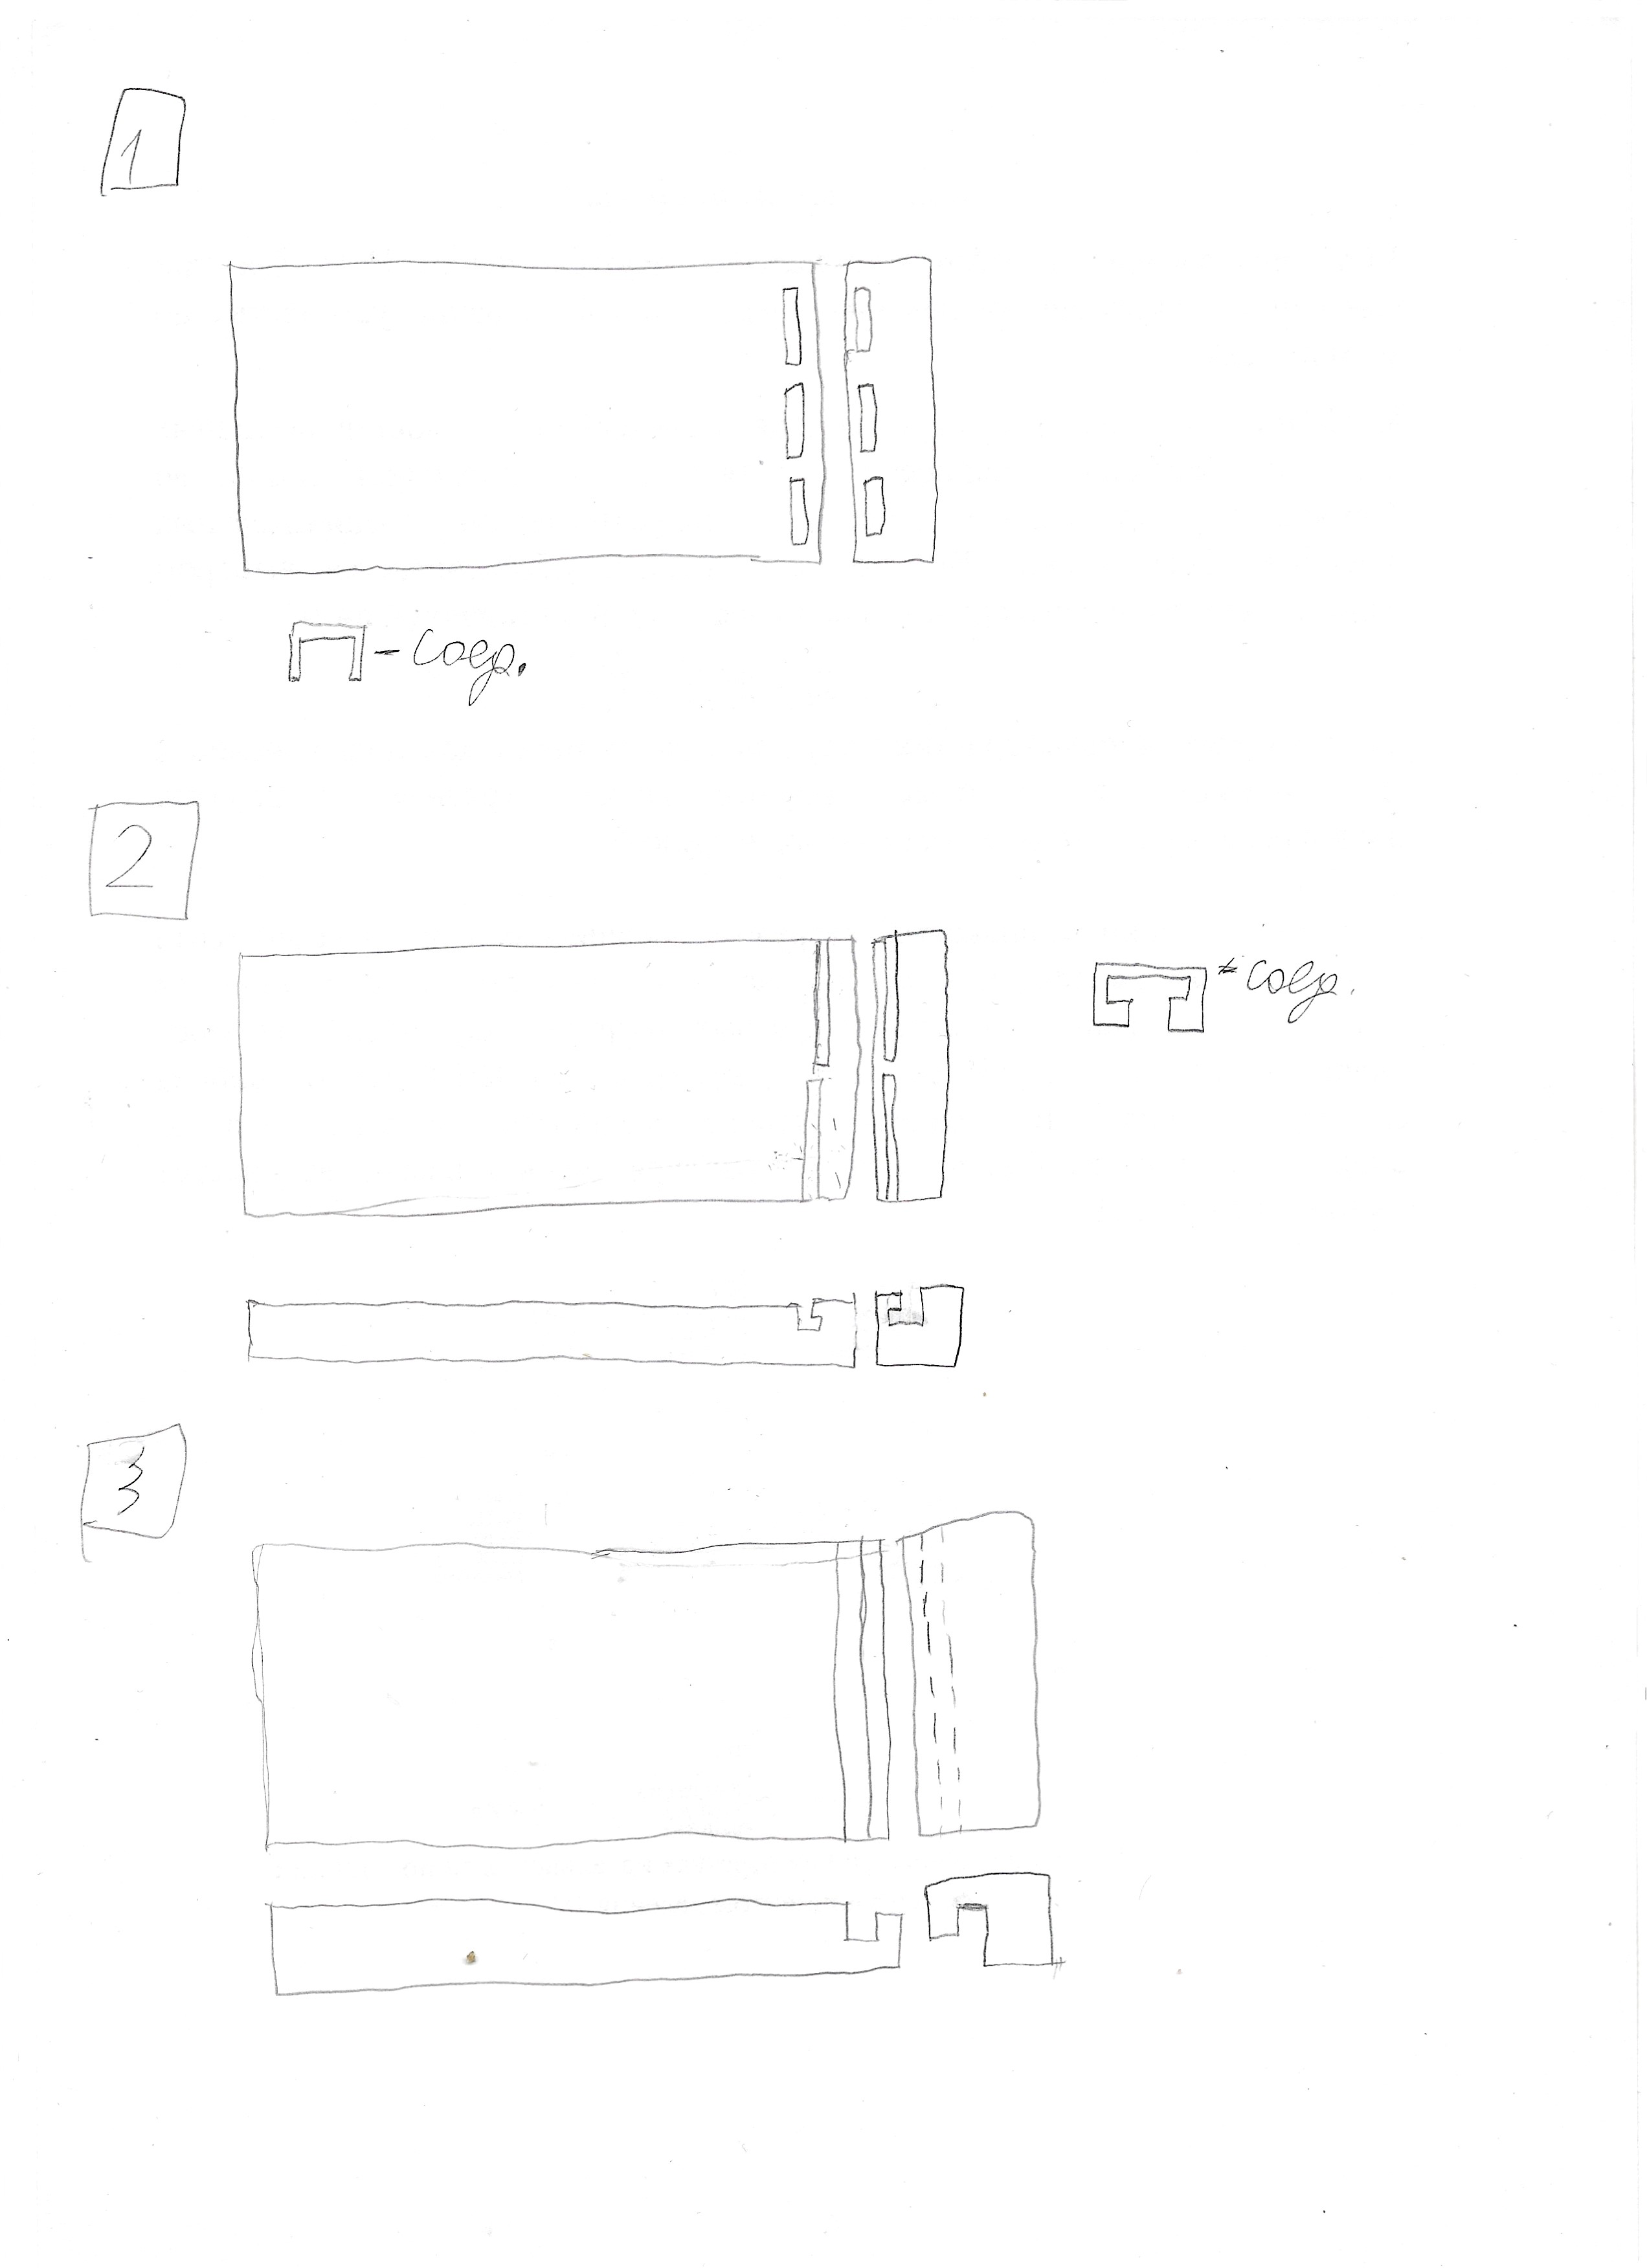 1
- соед.
2
- соед.
3